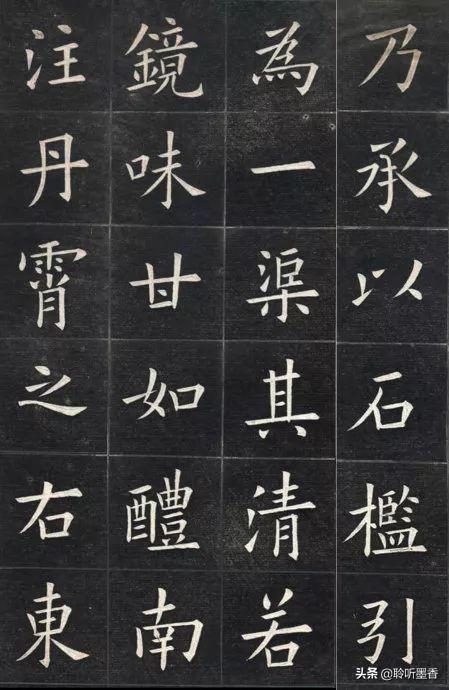 乃承以石檻引
為一渠其清若
鏡味甘如醴南
注丹霄之右東
头条 @聆听墨香